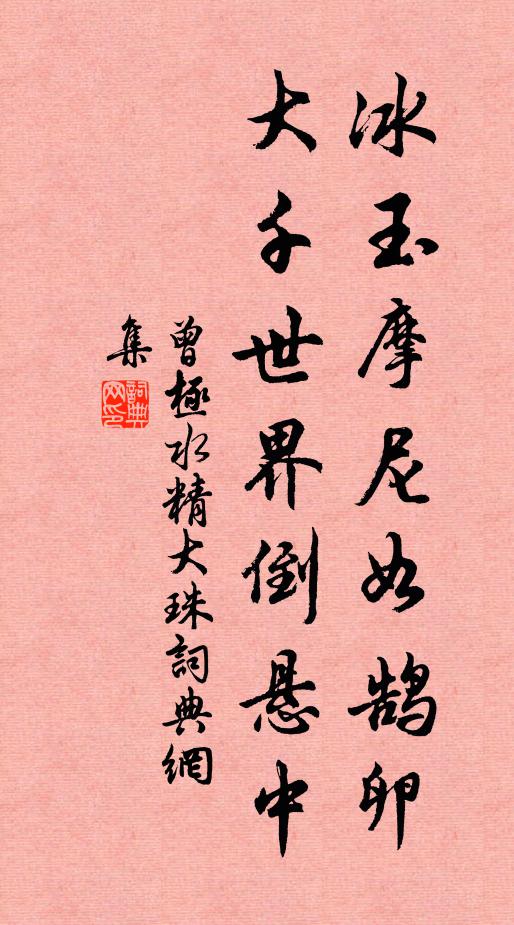 冰玉摩尼如鹄卵
大千世界倒悬中
曾極水精大珠詞典網
集
詞典
网印